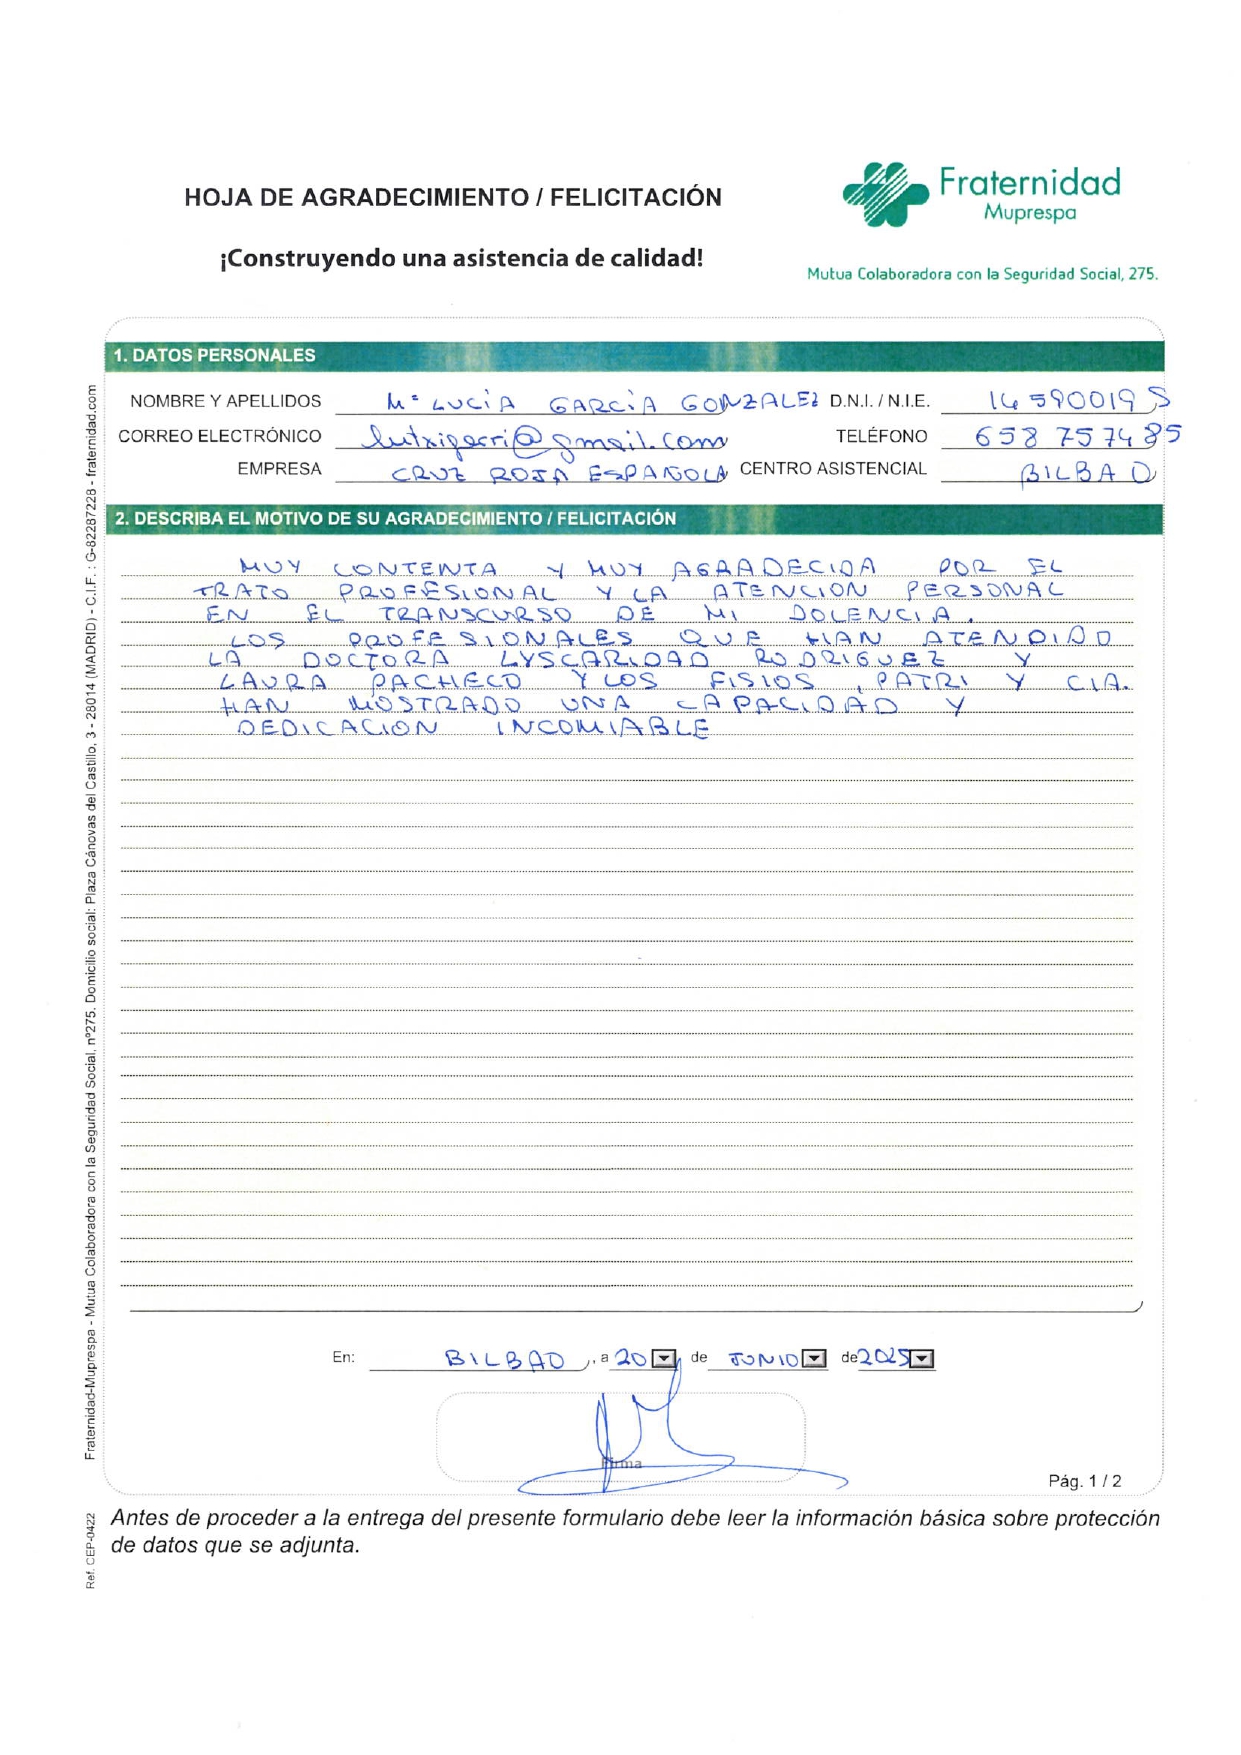 HOJA DE AGRADECIMIENTO / FELICITACIÓN
¡Construyendo una asistencia de calidad!
Fraternidad
Muprespa
Mutua Colaboradora con la Seguridad Social, 275.
1. DATOS PERSONALES
NOMBRE Y APELLIDOS Mª LUCÍA GARCÍA GONZALEZ D.N.I. / N.I.E. 14590019S
CORREO ELECTRÓNICO lutxigarri@gmail.com TELÉFONO 658 757485
EMPRESA CRUZ ROJA ESPAÑOLA CENTRO ASISTENCIAL BILBAO
2. DESCRIBA EL MOTIVO DE SU AGRADECIMIENTO / FELICITACIÓN
MUY CONTENTA Y MUY AGRADECIDA POR EL
TRATO PROFESIONAL Y LA ATENCION PERSONAL
EN EL TRANSCURSO DE MI DOLENCIA.
LOS PROFESIONALES QUE HAN ATENDIDO
LA DOCTORA LYSCARIDAD RODRIGUEZ Y
LAURA PACHECO Y LOS FISIOS, PATRI Y CIA.
HAN MOSTRADO UNA CAPACIDAD Y
DEDICACION INCOMIABLE
En: BILBAO, a 20 de JUNIO de 2025
Firma
Pág. 1 / 2
Antes de proceder a la entrega del presente formulario debe leer la información básica sobre protección
de datos que se adjunta.
Fraternidad-Muprespa - Mutua Colaboradora con la Seguridad Social, nº275. Domicilio social: Plaza Cánovas del Castillo, 3 - 28014 (MADRID) - C.I.F. : G-82287228 - fraternidad.com
Ref. CEP-0422